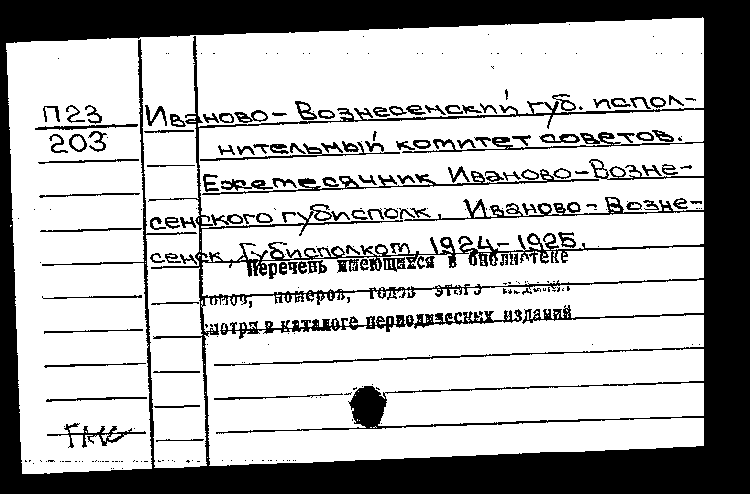 П23
203
Иваново-Вознесенский губ. испол-
нительный комитет советов.
Ежемесячник Иваново-Возне-
сенского губисполк. Иваново-Возне-
сенск, Губисполком, 1924-1925.
Перечень имеющихся в библиотеке
томов, номеров, годов этого издания
смотри в каталоге периодических изданий